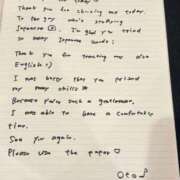 Thank you for choosing me today.
To the guy who's studying
Japanese I'm glad you tried
so many Japanese words!
Thank you for teaching me also
English :)
I was happy that you praised
my many skills
Because you're such a gentleman,
I was able to have a comfortable
time.
See you again.
Please use the paper